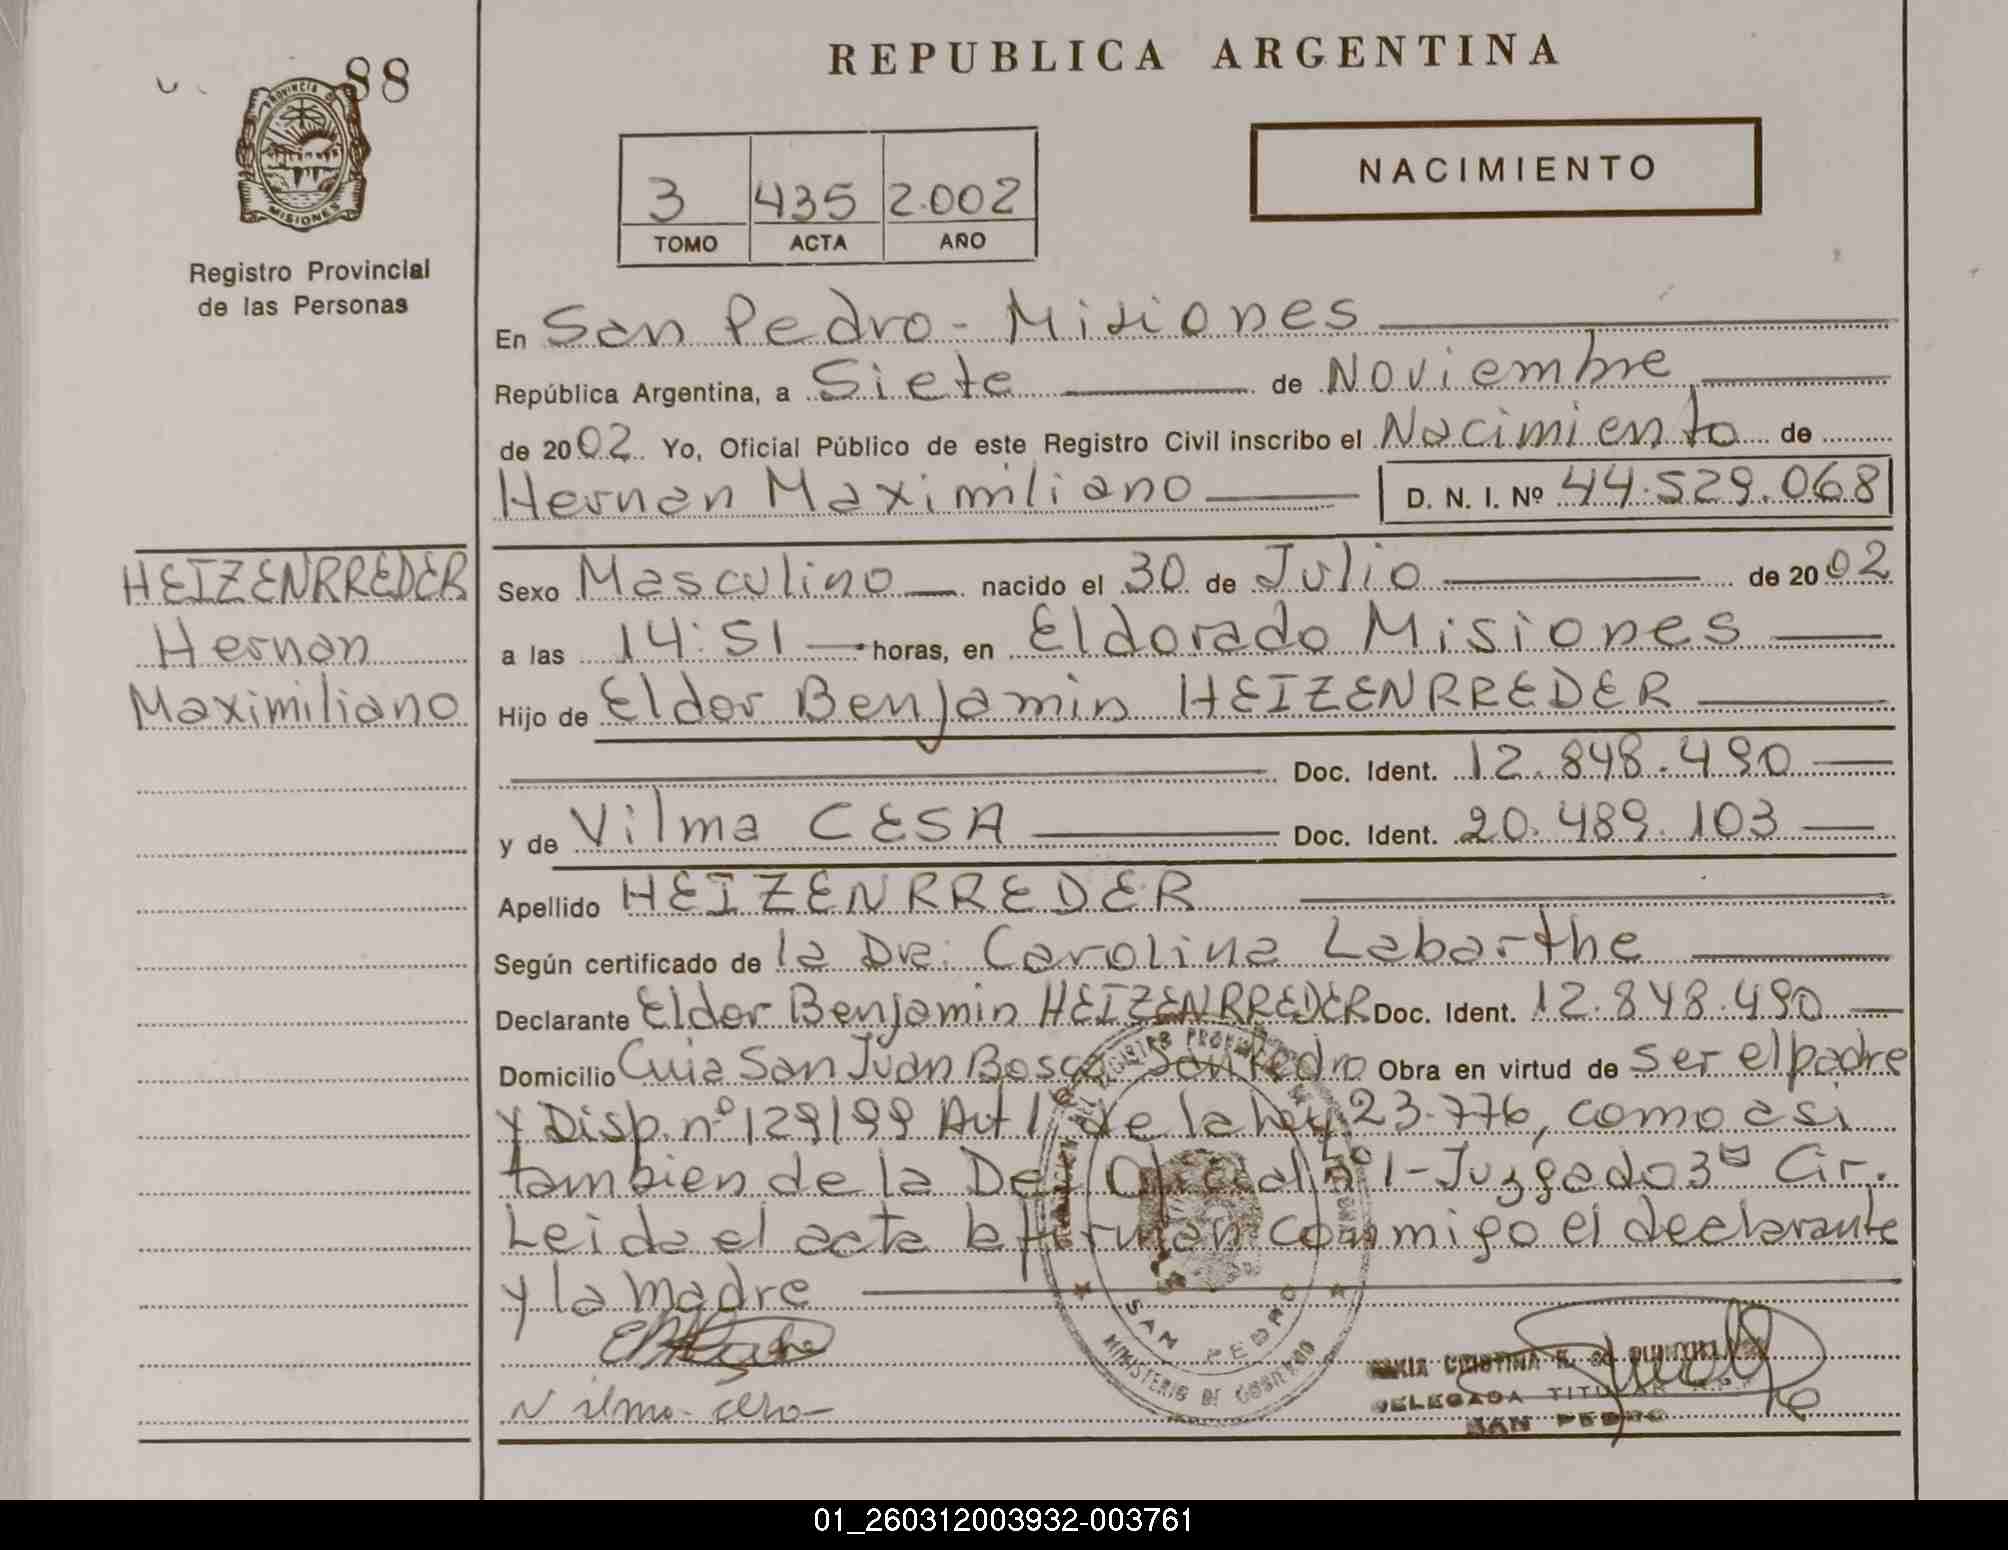 88
REPUBLICA ARGENTINA
PROVINCIA DE
MISIONES
NACIMIENTO
3 435 2.002
TOMO ACTA AÑO
Registro Provincial
de las Personas
En San Pedro - Misiones
República Argentina, a Siete de Noviembre
de 2002 Yo, Oficial Público de este Registro Civil inscribo el Nacimiento de
Hernan Maximiliano D. N. I. Nº 44.529.068
HEIZENRREDER
Hernan
Maximiliano
Sexo Masculino nacido el 30 de Julio de 2002
a las 14:51 horas, en Eldorado Misiones
Hijo de Eldor Benjamin HEIZENRREDER
Doc. Ident. 12.848.490
y de Vilma CESA Doc. Ident. 20.489.103
Apellido HEIZENRREDER
Según certificado de la Dra: Carolina Labarthe
Declarante Eldor Benjamin HEIZENRREDER Doc. Ident. 12.848.490
Domicilio Cuia San Juan Bosco San Pedro Obra en virtud de Ser el padre
y Disp. nº 129/99 Art 1º de la ley 23.776, como asi
tambien de la Def Oficial Nº 1 - Juzgado 3ª Cir.
Leida el acta la firman conmigo el declarante
y la madre
SAN PEDRO
MINISTERIO DE GOBIERNO
Vilma
CRISTINA R. de
DELEGADA TITULAR R.P.P.
SAN PEDRO
01_260312003932-003761